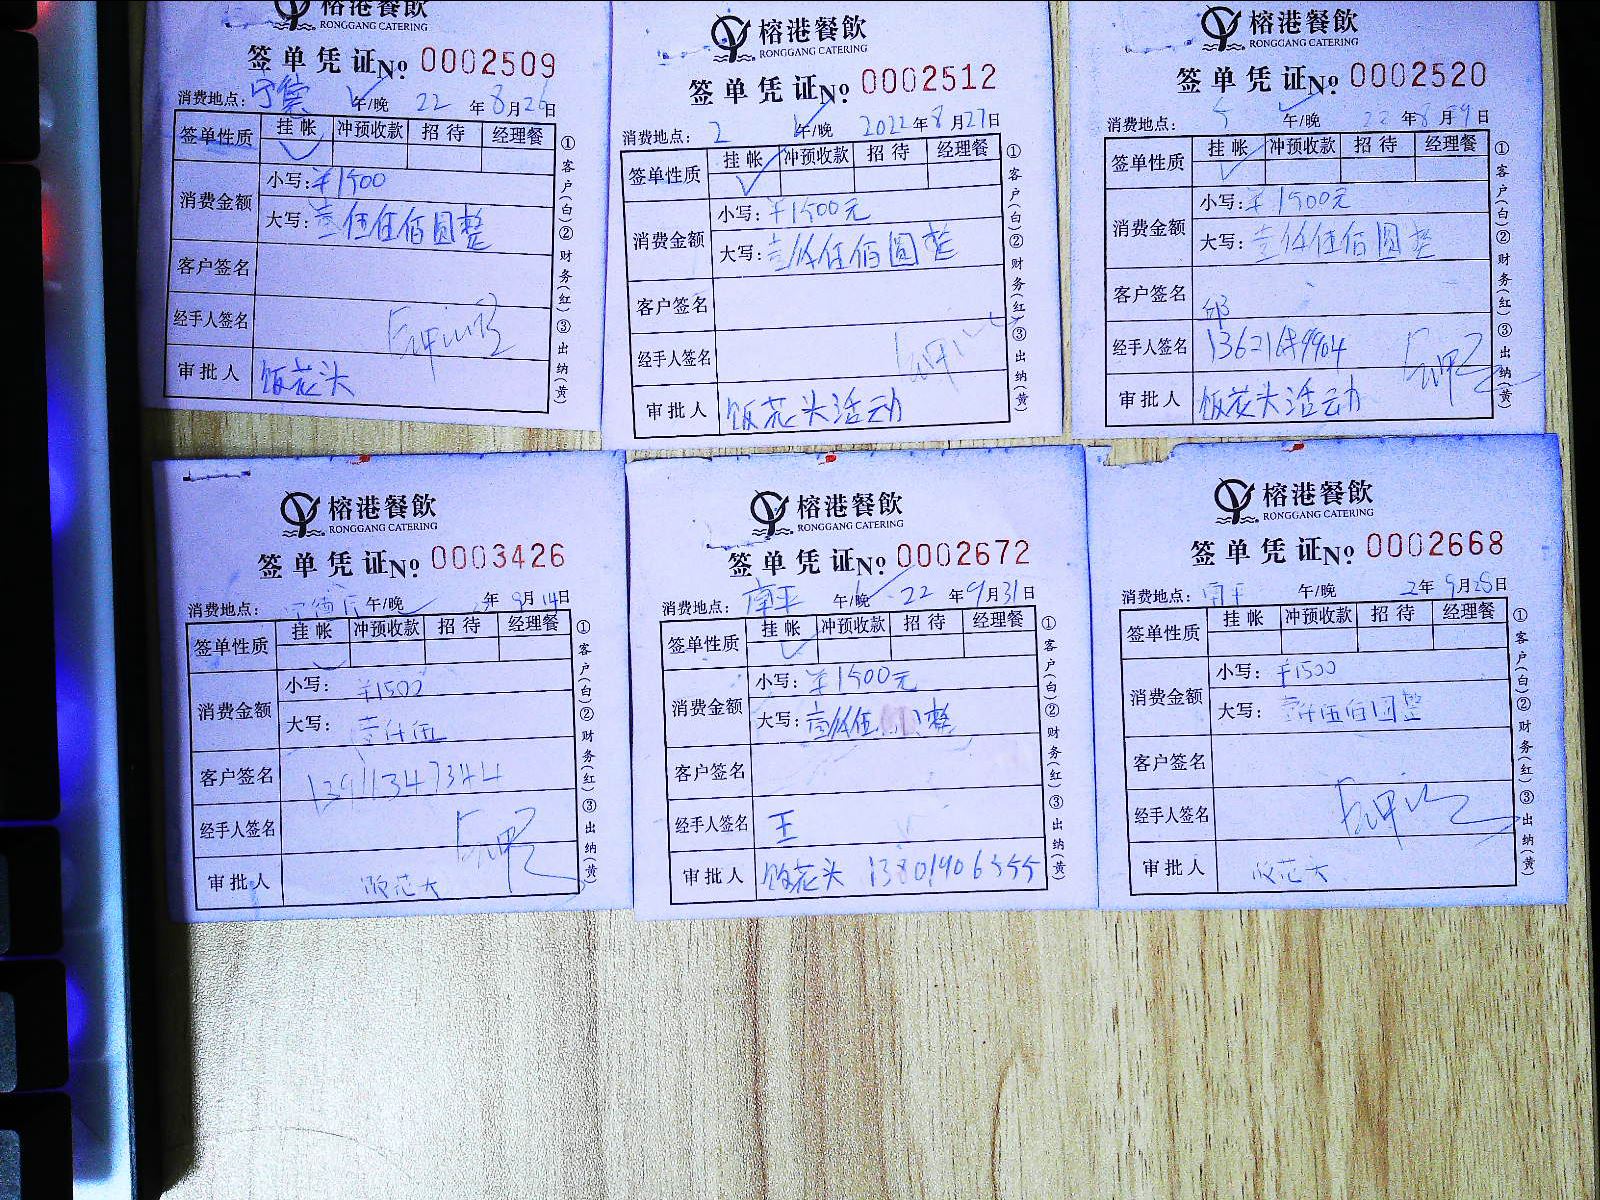 榕港餐飲
RONGGANG CATERING
签单凭证No 0002509
消费地点: 宁德 午/晚 22年8月26日
签单性质 挂帐 冲预收款 招待 经理餐
消费金额 小写: ¥1500
大写: 壹伍伍佰圆整
客户签名
经手人签名
审批人 饭花头
①客户(白)②财务(红)③出纳(黄)
榕港餐飲
RONGGANG CATERING
签单凭证No 0002512
消费地点: 2 午/晚 2022年8月27日
签单性质 挂帐 冲预收款 招待 经理餐
消费金额 小写: ¥1500元
大写: 壹仟伍佰圆整
客户签名
经手人签名
审批人 饭花头活动
①客户(白)②财务(红)③出纳(黄)
榕港餐飲
RONGGANG CATERING
签单凭证No 0002520
消费地点: 午/晚 22年8月9日
签单性质 挂帐 冲预收款 招待 经理餐
消费金额 小写: ¥1500元
大写: 壹仟伍佰圆整
客户签名
经手人签名
审批人 饭花头活动
①客户(白)②财务(红)③出纳(黄)
榕港餐飲
RONGGANG CATERING
签单凭证No 0003426
消费地点: 午/晚 年9月14日
签单性质 挂帐 冲预收款 招待 经理餐
消费金额 小写: ¥1500
大写: 壹仟伍
客户签名 13911347344
经手人签名
审批人 饭花头
①客户(白)②财务(红)③出纳(黄)
榕港餐飲
RONGGANG CATERING
签单凭证No 0002672
消费地点: 南平 午/晚 22年9月31日
签单性质 挂帐 冲预收款 招待 经理餐
消费金额 小写: ¥1500元
大写: 壹仟伍 整
客户签名
经手人签名 王
审批人 饭花头 13801906555
①客户(白)②财务(红)③出纳(黄)
榕港餐飲
RONGGANG CATERING
签单凭证No 0002668
消费地点: 南平 午/晚 2年9月28日
签单性质 挂帐 冲预收款 招待 经理餐
消费金额 小写: ¥1500
大写: 壹仟伍佰圆整
客户签名
经手人签名
审批人 饭花头
①客户(白)②财务(红)③出纳(黄)